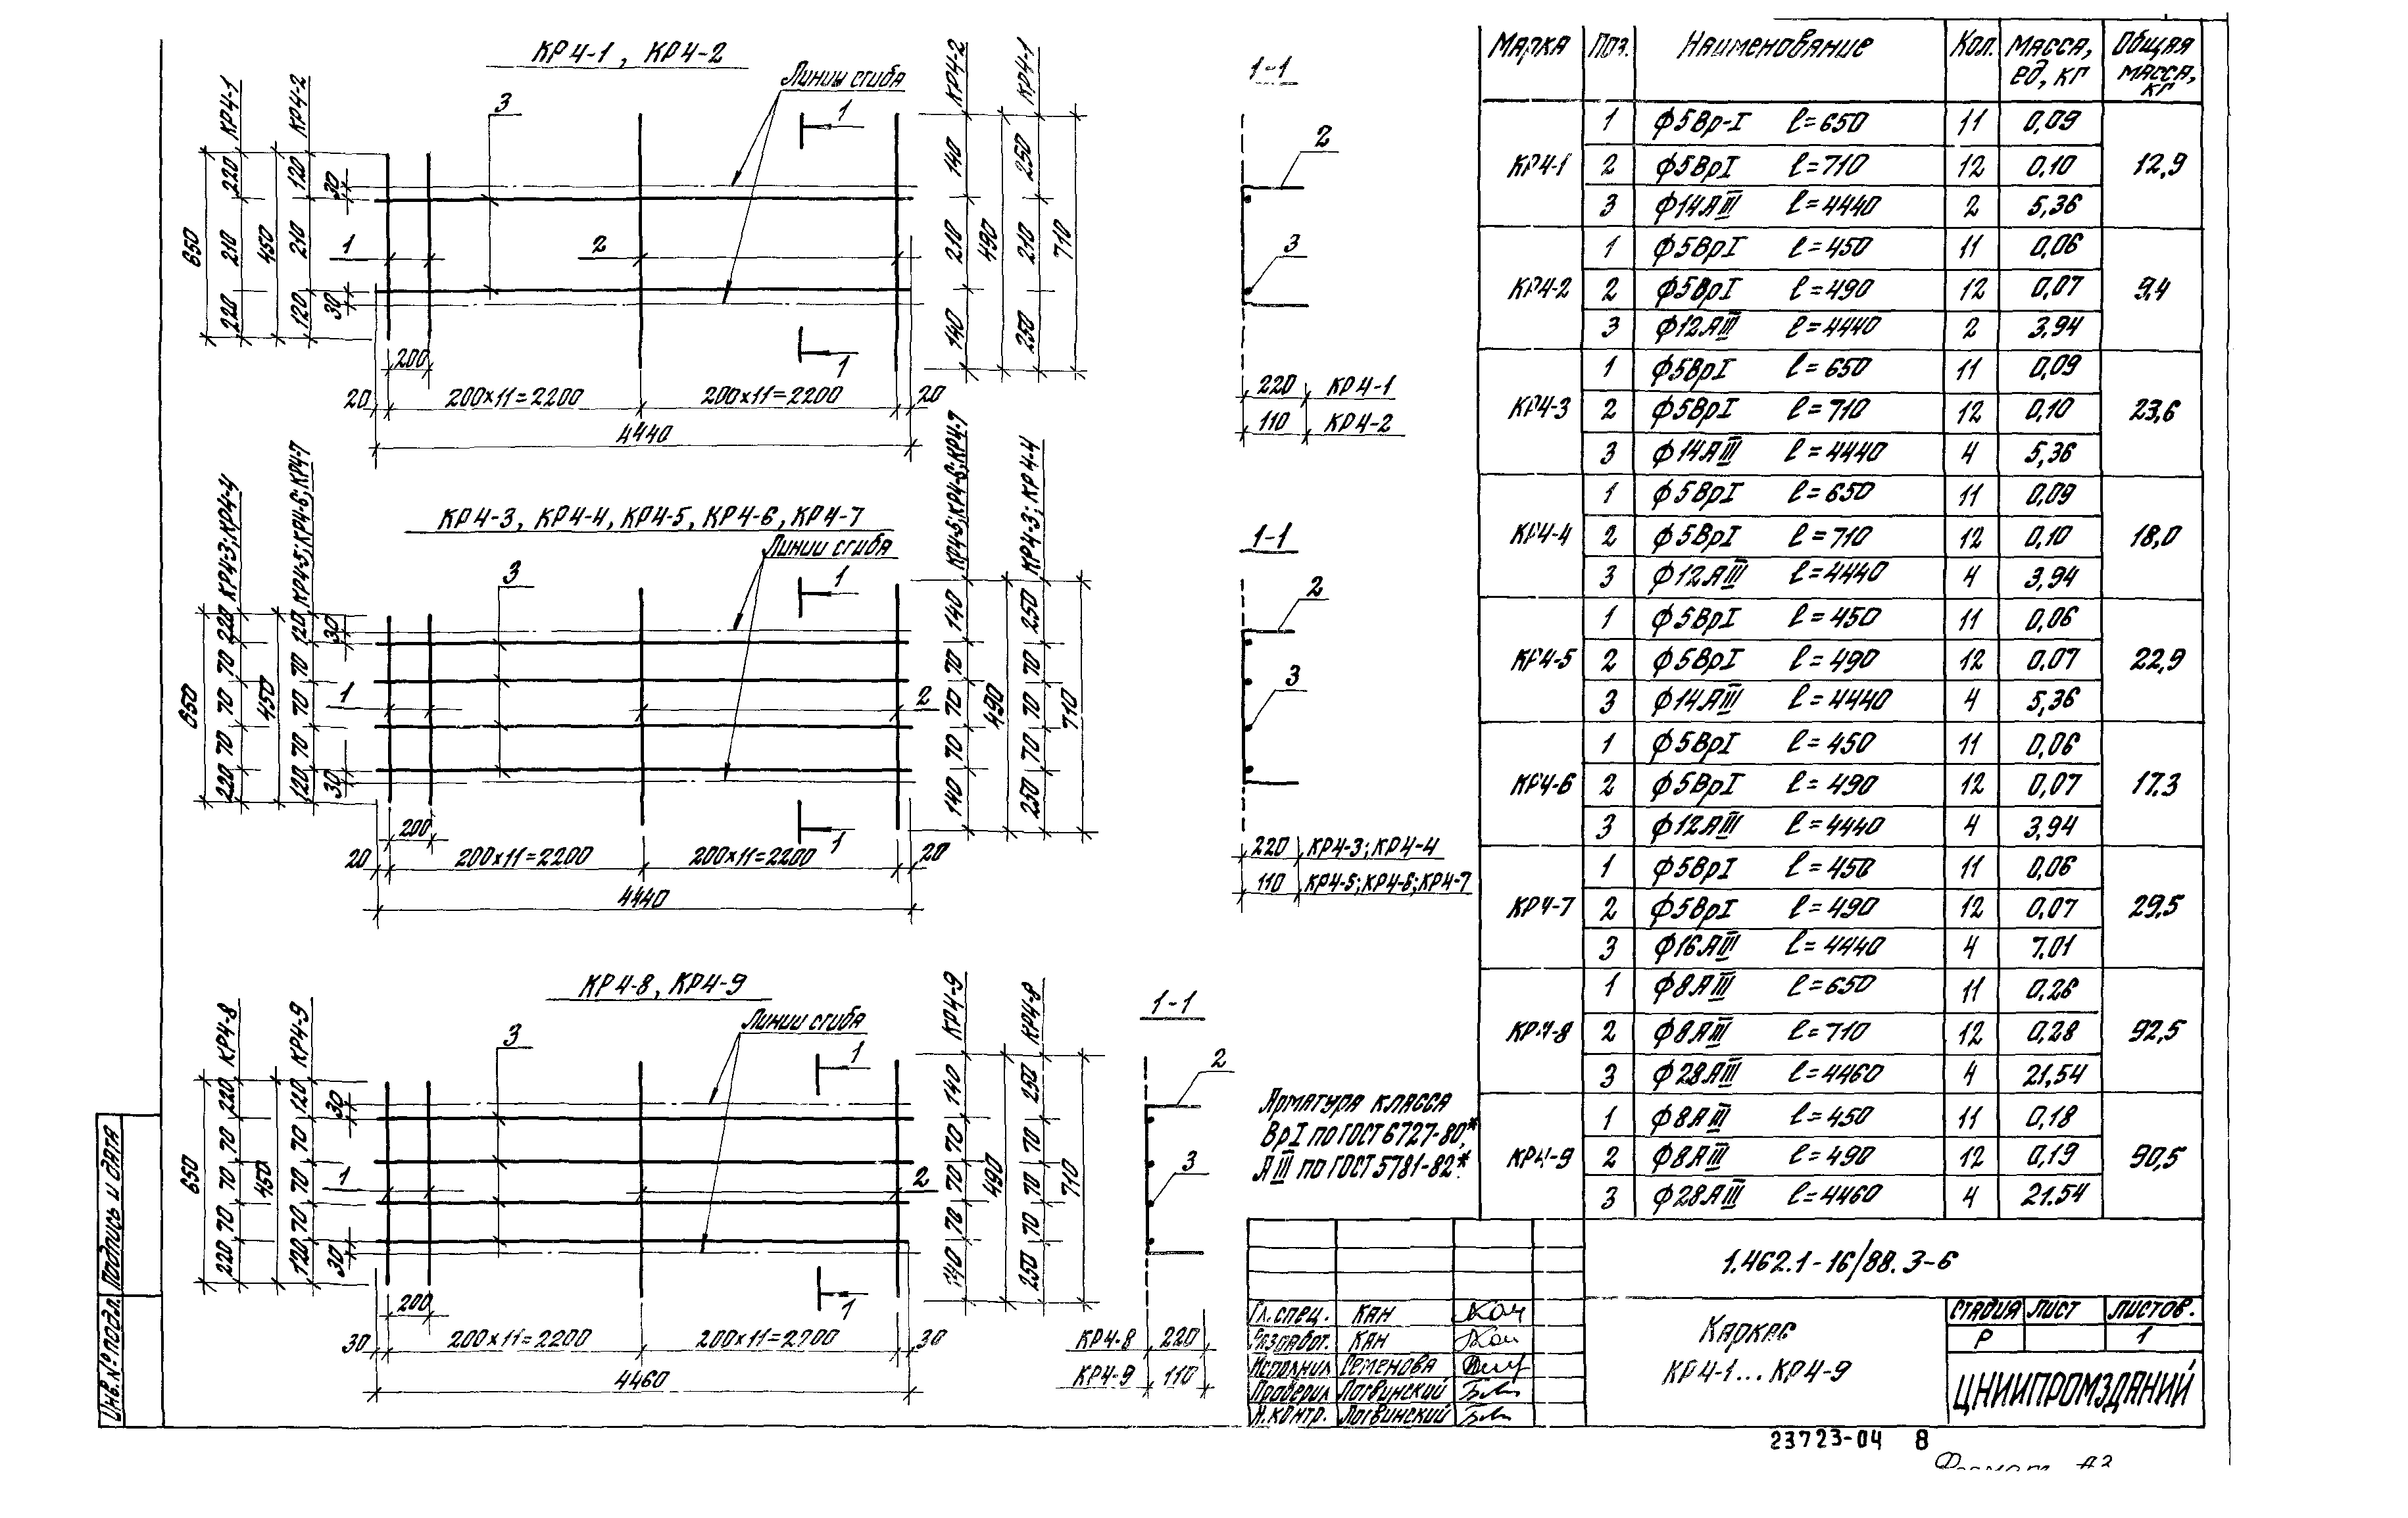 КР4-1, КР4-2
Линии сгиба
3
1
1
1
2
КР4-1
КР4-2
220
210
220
650
450
120
210
120
30
30
200
20
200×11=2200
200×11=2200
20
4440
КР4-2
КР4-1
140
210
140
490
250
210
250
710
1-1
2
3
220 КР4-1
110 КР4-2
КР4-3, КР4-4, КР4-5, КР4-6, КР4-7
Линии сгиба
3
1
1
1
2
КР4-3; КР4-4
КР4-5; КР4-6; КР4-7
220
70
70
70
220
650
450
120
70
70
70
120
30
30
200
20
200×11=2200
200×11=2200
20
4440
КР4-5; КР4-6; КР4-7
КР4-3; КР4-4
140
70
70
70
140
490
250
70
70
70
250
710
1-1
2
3
220 КР4-3; КР4-4
110 КР4-5; КР4-6; КР4-7
КР4-8, КР4-9
Линии сгиба
3
1
1
1
2
КР4-8
КР4-9
220
70
70
70
220
650
450
120
70
70
70
120
30
30
200
30
200×11=2200
200×11=2200
30
4460
КР4-9
КР4-8
140
70
70
70
140
490
250
70
70
70
250
710
1-1
2
3
КР4-8 220
КР4-9 110
Арматура класса
ВрI по ГОСТ 6727-80*,
АIII по ГОСТ 5781-82*.
Марка Поз. Наименование Кол. Масса, ед, кг Общая масса, кг
КР4-1 12,9
1 Ф5Вр-I l=650 11 0,09
2 Ф5ВрI l=710 12 0,10
3 Ф14АIII l=4440 2 5,36
КР4-2 9,4
1 Ф5ВрI l=450 11 0,06
2 Ф5ВрI l=490 12 0,07
3 Ф12АIII l=4440 2 3,94
КР4-3 23,6
1 Ф5ВрI l=650 11 0,09
2 Ф5ВрI l=710 12 0,10
3 Ф14АIII l=4440 4 5,36
КР4-4 18,0
1 Ф5ВрI l=650 11 0,09
2 Ф5ВрI l=710 12 0,10
3 Ф12АIII l=4440 4 3,94
КР4-5 22,9
1 Ф5ВрI l=450 11 0,06
2 Ф5ВрI l=490 12 0,07
3 Ф14АIII l=4440 4 5,36
КР4-6 17.3
1 Ф5ВрI l=450 11 0,06
2 Ф5ВрI l=490 12 0,07
3 Ф12АIII l=4440 4 3,94
КР4-7 29,5
1 Ф5ВрI l=450 11 0,06
2 Ф5ВрI l=490 12 0,07
3 Ф16АIII l=4440 4 7,01
КР4-8 92,5
1 Ф8АIII l=650 11 0,26
2 Ф8АIII l=710 12 0,28
3 Ф28АIII l=4460 4 21,54
КР4-9 90,5
1 Ф8АIII l=450 11 0,18
2 Ф8АIII l=490 12 0,19
3 Ф28АIII l=4460 4 21.54
1.462.1-16/88.3-6
Гл.спец. Кан
Разработ. Кан
Исполнил Семенова
Проверил Логвинский
Н.контр. Логвинский
Каркас
КР4-1...КР4-9
Стадия Лист Листов.
Р 1
ЦНИИПРОМЗДАНИЙ
Инв.№ подл. Подпись и дата
23723-04 8